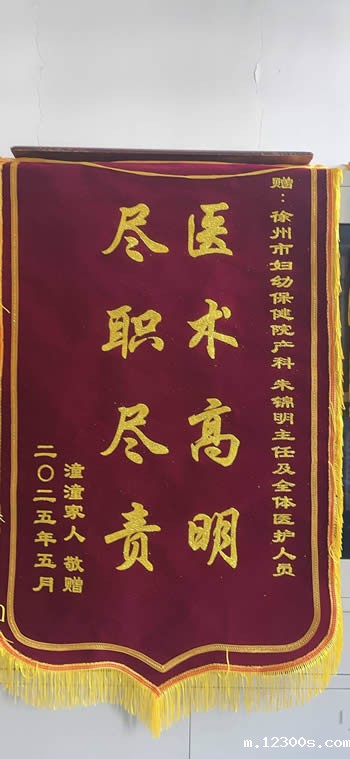 赠：徐州市妇幼保健院产科 朱锦明主任及全体医护人员
医术高明
尽职尽责
潼潼家人 敬赠
二〇二五年五月
m.12300s.com